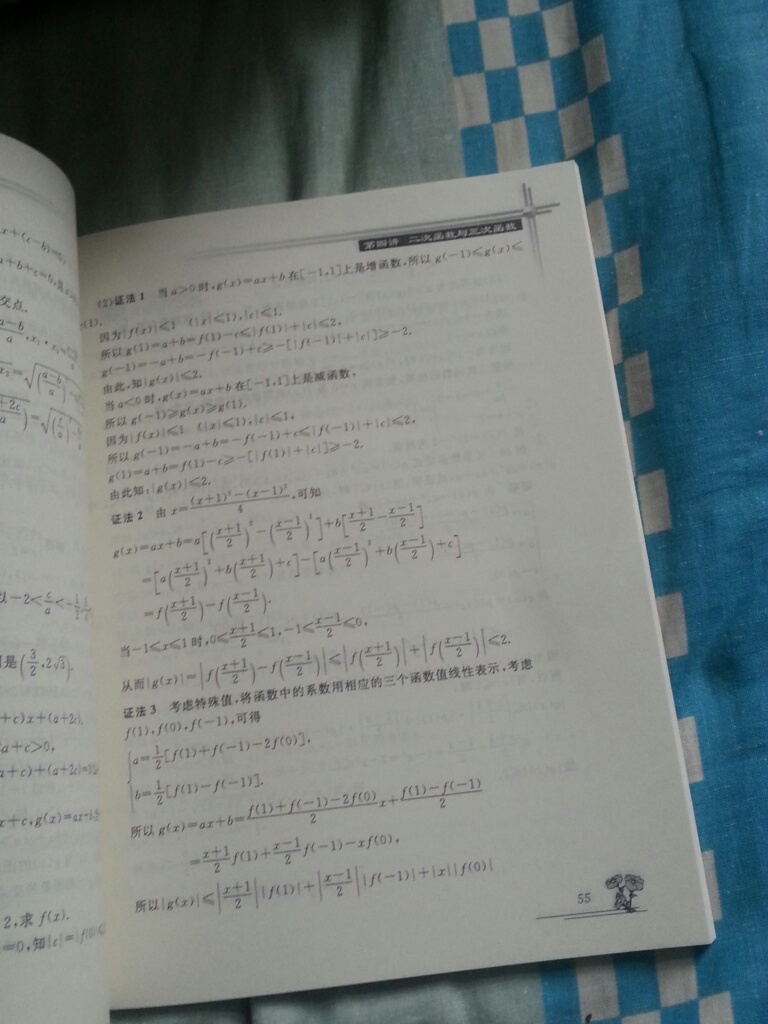 x+(c-b)=0
a+b+c=0
交点.
以-2<c/a<-1/2
是(3/2,2√3).
+c)x+(a+2c)
a+c>0,
a+c)+(a+2c)
x+c,g(x)=ax+b
2,求 f(x).
=0,知|c|=|f(0)
第四讲 二次函数与三次函数
(2)证法1 当a>0时,g(x)=ax+b在[-1,1]上是增函数,所以g(-1)≤g(x)≤
g(1).
因为|f(x)|≤1 (|x|≤1),|c|≤1.
所以g(1)=a+b=f(1)-c≤|f(1)|+|c|≤2,
g(-1)=-a+b=-f(-1)+c≥-[|f(-1)|+|c|]≥-2.
由此,知|g(x)|≤2.
当a<0时,g(x)=ax+b在[-1,1]上是减函数,
所以g(-1)≥g(x)≥g(1).
因为|f(x)|≤1 (|x|≤1),|c|≤1,
所以g(-1)=-a+b=-f(-1)+c≤|f(-1)|+|c|≤2,
g(1)=a+b=f(1)-c≥-[|f(1)|+|c|]≥-2.
由此知:|g(x)|≤2.
证法2 由x=((x+1)²-(x-1)²)/4,可知
g(x)=ax+b=a[((x+1)/2)²-((x-1)/2)²]+b[(x+1)/2-(x-1)/2]
=[a((x+1)/2)²+b((x+1)/2)+c]-[a((x-1)/2)²+b((x-1)/2)+c]
=f((x+1)/2)-f((x-1)/2).
当-1≤x≤1时,0≤(x+1)/2≤1,-1≤(x-1)/2≤0,
从而|g(x)|=|f((x+1)/2)-f((x-1)/2)|≤|f((x+1)/2)|+|f((x-1)/2)|≤2.
证法3 考虑特殊值,将函数中的系数用相应的三个函数值线性表示,考虑
f(1),f(0),f(-1),可得
a=1/2[f(1)+f(-1)-2f(0)],
b=1/2[f(1)-f(-1)].
所以g(x)=ax+b=(f(1)+f(-1)-2f(0))/2 x+(f(1)-f(-1))/2
=(x+1)/2 f(1)+(x-1)/2 f(-1)-xf(0),
所以|g(x)|≤|(x+1)/2||f(1)|+|(x-1)/2||f(-1)|+|x||f(0)|
55